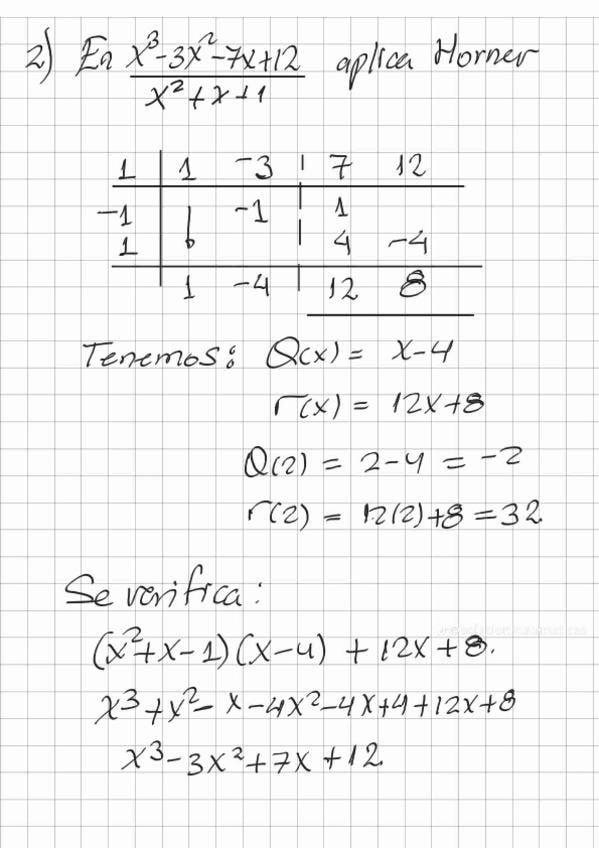 2) En x³-3x²-7x+12 aplica Horner
x²+x+1
1 | 1 -3 | 7 12
-1 | -1 | 1
1 | | 4 -4
1 -4 | 12 8
Tenemos: Q(x) = x-4
r(x) = 12x+8
Q(2) = 2-4 = -2
r(2) = 12(2)+8 = 32
Se verifica:
(x²+x-1)(x-4) + 12x+8.
x³+x²-x-4x²-4x+4+12x+8
x³-3x²+7x+12